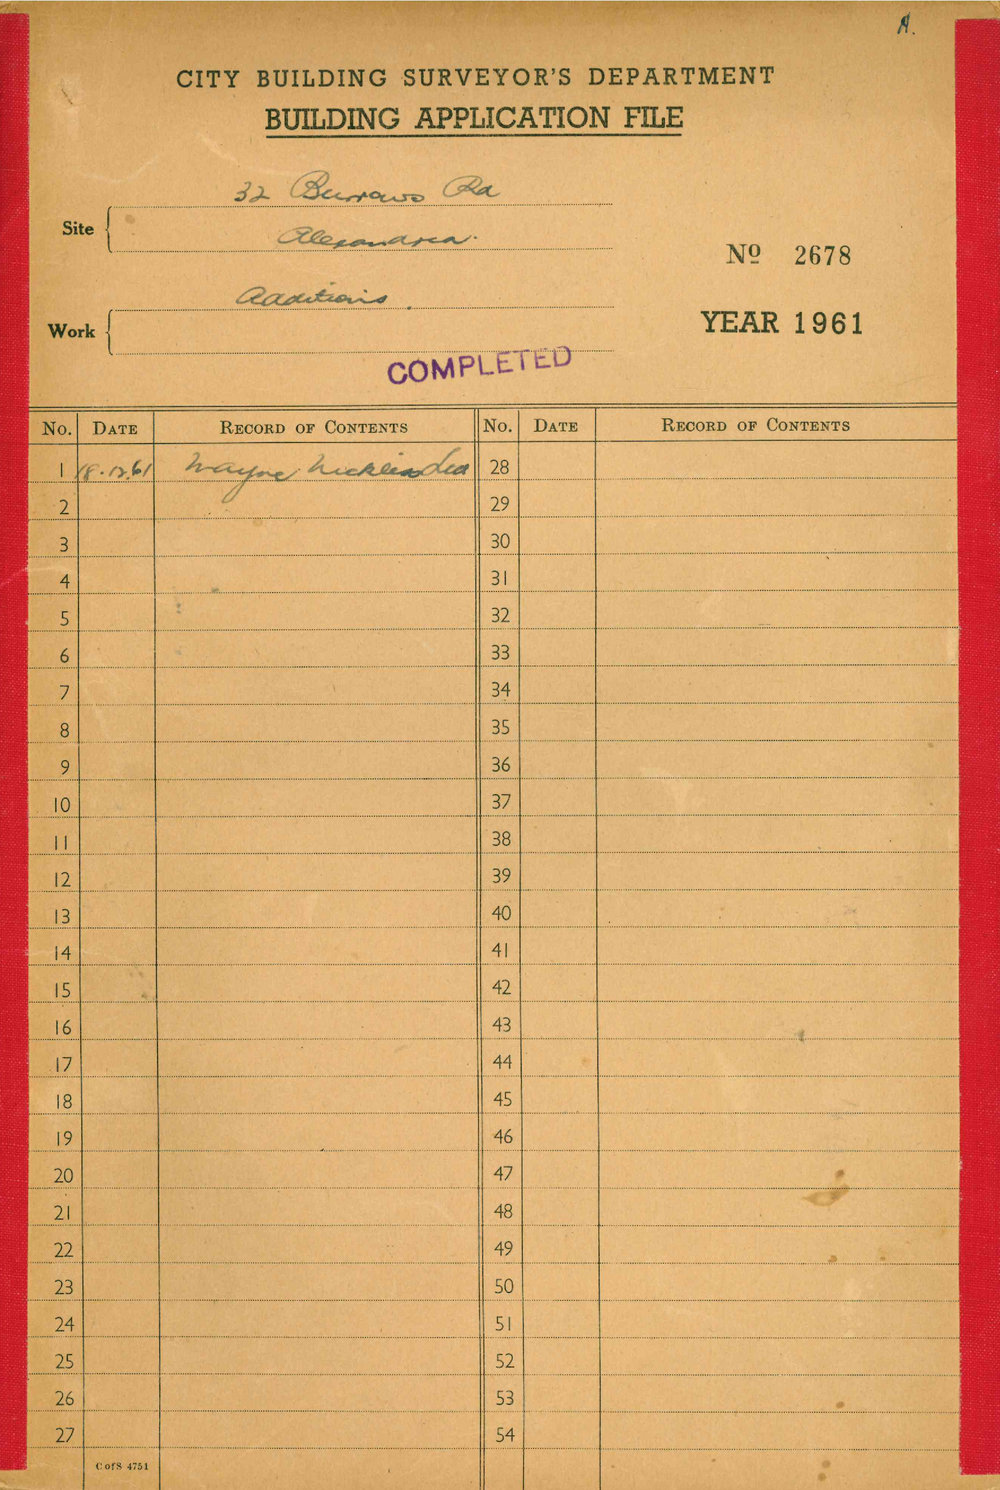 A.
CITY BUILDING SURVEYOR'S DEPARTMENT
BUILDING APPLICATION FILE
32 Burrows Rd
Site
Alexandria.
Nº 2678
Additions.
Work
YEAR 1961
COMPLETED
No. DATE RECORD OF CONTENTS No. DATE RECORD OF CONTENTS
1 18.12.61 Wayne Nicklin Ltd 28
2 29
3 30
4 31
5 32
6 33
7 34
8 35
9 36
10 37
11 38
12 39
13 40
14 41
15 42
16 43
17 44
18 45
19 46
20 47
21 48
22 49
23 50
24 51
25 52
26 53
27 54
C of S 4751